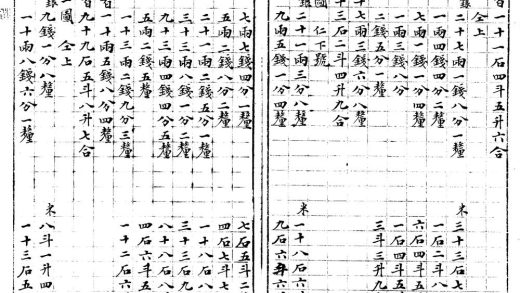 一十一石四斗五升六合
仝上
銀二十七兩一錢八分一釐 米三十三石七
一十一兩四錢八分二釐 一石二斗八
七兩四錢一分四釐 六石四斗
一兩三錢八分 一石四斗四
二錢五分一釐 三斗三升九
七兩三錢六分八釐
十三石二斗四升九合
圖 仁下號
銀二十一兩三分八釐 米一十八石六
九兩五錢一分四釐 九石六斗六
七兩七錢四分一釐 七石五斗二
五兩二錢八分二釐 四石七斗七
二十一兩二錢五分一釐 一十八石八
一十三兩八錢一分二釐 三十三石九
九十三兩四錢四分五釐 八十三石八
五兩二錢五釐 四石六斗五
一十三兩二錢九分三釐 一十二石六
百一十兩五錢五分四釐
百九十九石五斗八升七合
一圖 仝上
銀九錢一分八釐 米八斗一升四
一十兩八錢六分一釐 一十三石五